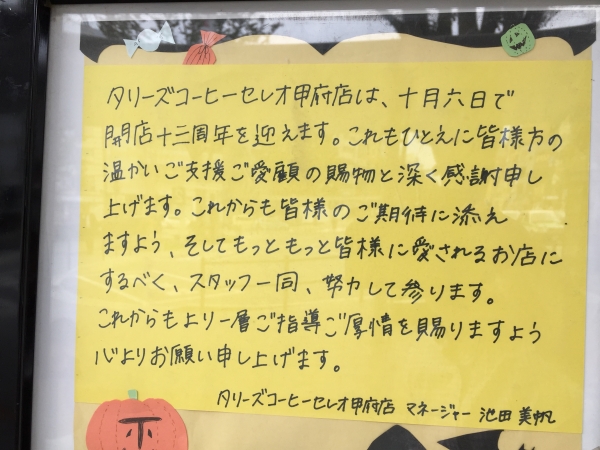 タリーズコーヒーセレオ甲府店は、十月六日で
開店十三周年を迎えます。これもひとえに皆様方の
温かいご支援ご愛顧の賜物と深く感謝申し
上げます。これからも皆様のご期待に添え
ますよう、そしてもっともっと皆様に愛されるお店に
するべく、スタッフ一同、努力して参ります。
これからもより一層ご指導ご厚情を賜りますよう
心よりお願い申し上げます。
タリーズコーヒーセレオ甲府店 マネージャー 池田 美帆